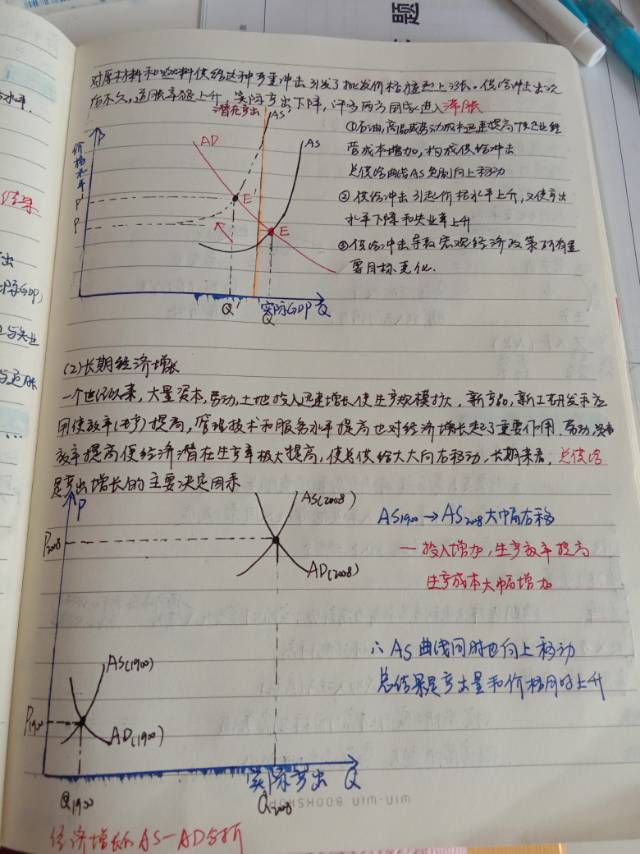 对原材料和燃料供给这种严重冲击引发了批发价格猛烈上涨。供给冲击出现
后不久,通胀率猛上升,实际产出下降,许多两方同时进入滞胀
潜在产出
AS'
AD
AS
P
价格水平
P'
P
E'
E
Q'
Q
实际GDP Q
①石油,商品或劳动成本迅速提高使企业经
营成本增加,构成供给冲击
总供给曲线AS急剧向上移动
②供给冲击引起价格水平上升,又使产出
水平下降和失业率上升
③供给冲击导致宏观经济政策所有重
要目标恶化.
(2)长期经济增长
一个世纪以来,大量资本,劳动,土地投入迅速增长使生产规模扩大,新产品,新工艺研发和应
用使效率提高,管理技术和服务水平提高也对经济增长起了重要作用.劳动
效率提高使经济潜在生产率极大提高,使总供给大大向右移动,长期来看,总供给
是产出增长的主要决定因素
P
AS(2008)
P2008
AD(2008)
AS1900→AS2008大幅右移
—投入增加,生产效率提高
生产成本大幅增加
∴AS曲线同时也向上移动
总结果是产出量和价格同时上升
AS(1900)
P1900
AD(1900)
实际产出 Q
Q1900
Q2008
MIN-MIN BOOKSHOP
经济增长的AS—AD分析
结果
产出
实际GDP)
与失业
与通胀
水平.
题